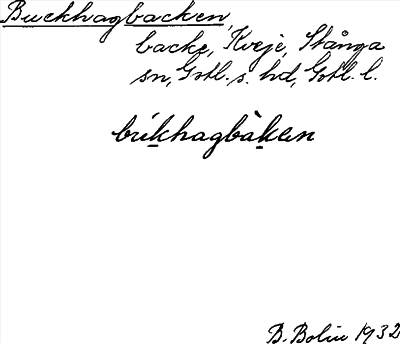 Buckhagbacken,
backe, Kveje, Stånga
sn, Gotl. s. hd, Gotl. l.
bríkhagbàken
B. Bolin 1932